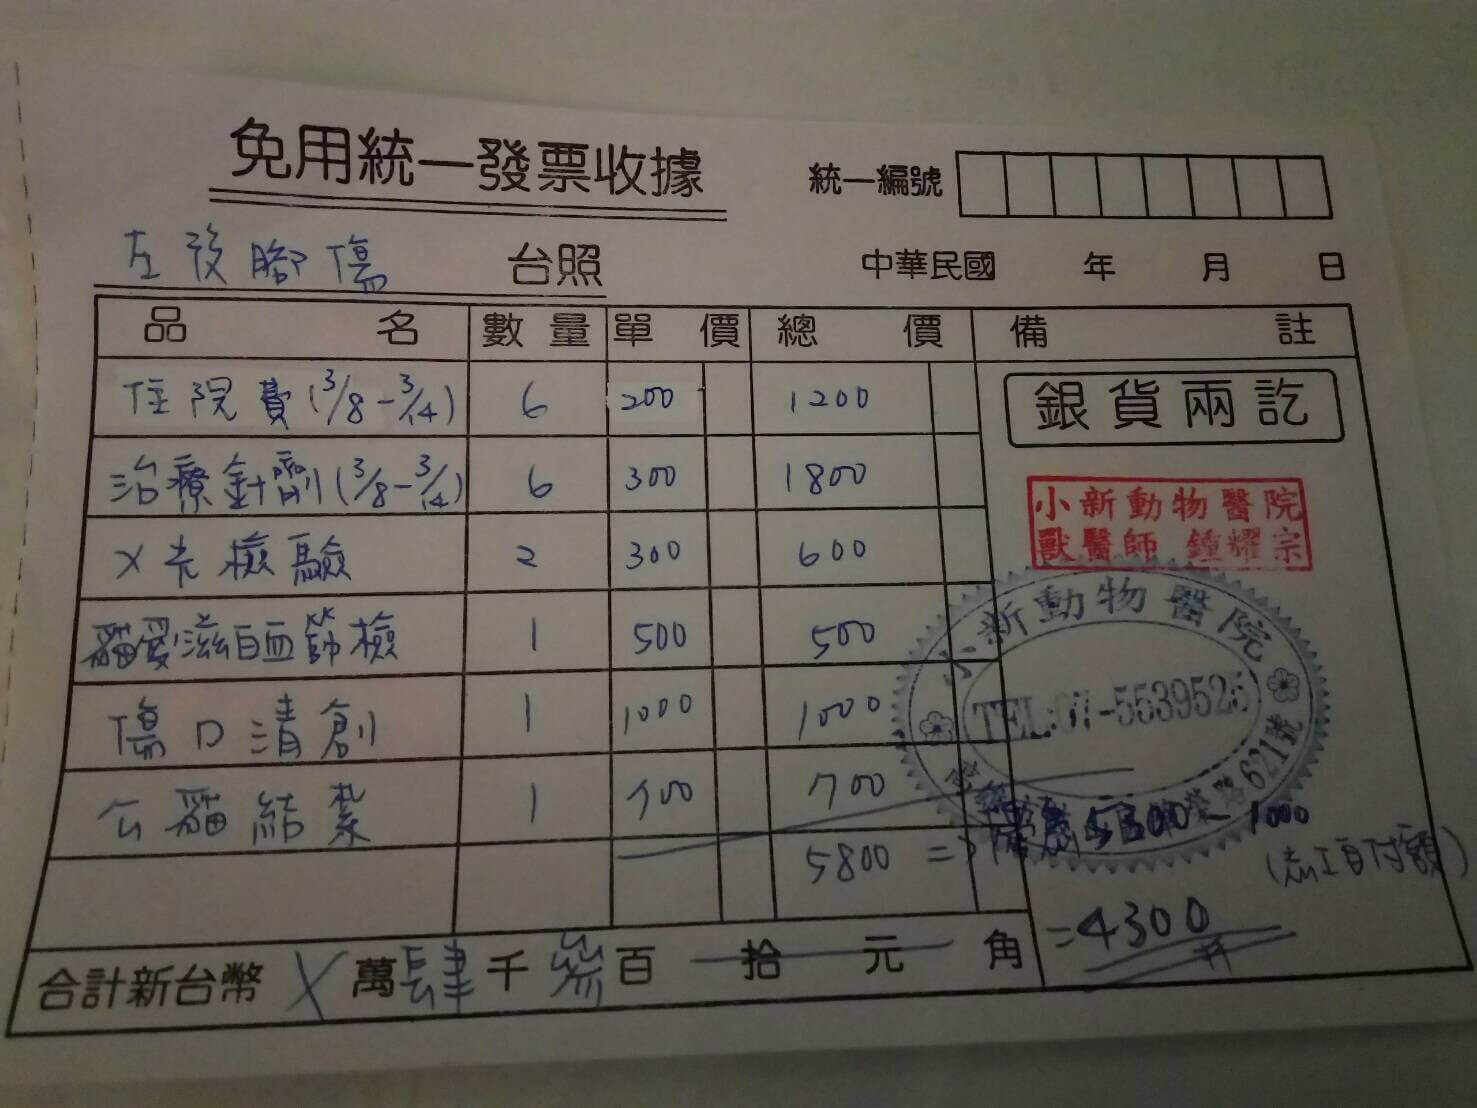 免用統一發票收據
統一編號
左後腳傷 台照
中華民國 年 月 日
品名 數量 單價 總價 備註
住院費(3/8-3/14) 6 200 1200
治療針劑(3/8-3/14) 6 300 1800
X光檢驗 2 300 600
貓愛滋白血篩檢 1 500 500
傷口清創 1 1000 1000
公貓結紮 1 700 700
5800 => 優惠 5300 - 1000
(志工自付額)
= 4300
銀貨兩訖
小新動物醫院
獸醫師 鍾耀宗
小新動物醫院
TEL:07-5539525
621號
合計新台幣 X 萬 肆 千 叁 百 拾 元 角